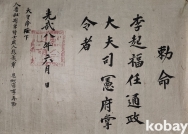 勅命
李起福任通政
大夫司憲府掌
令者
光武八年六月 日
kobay